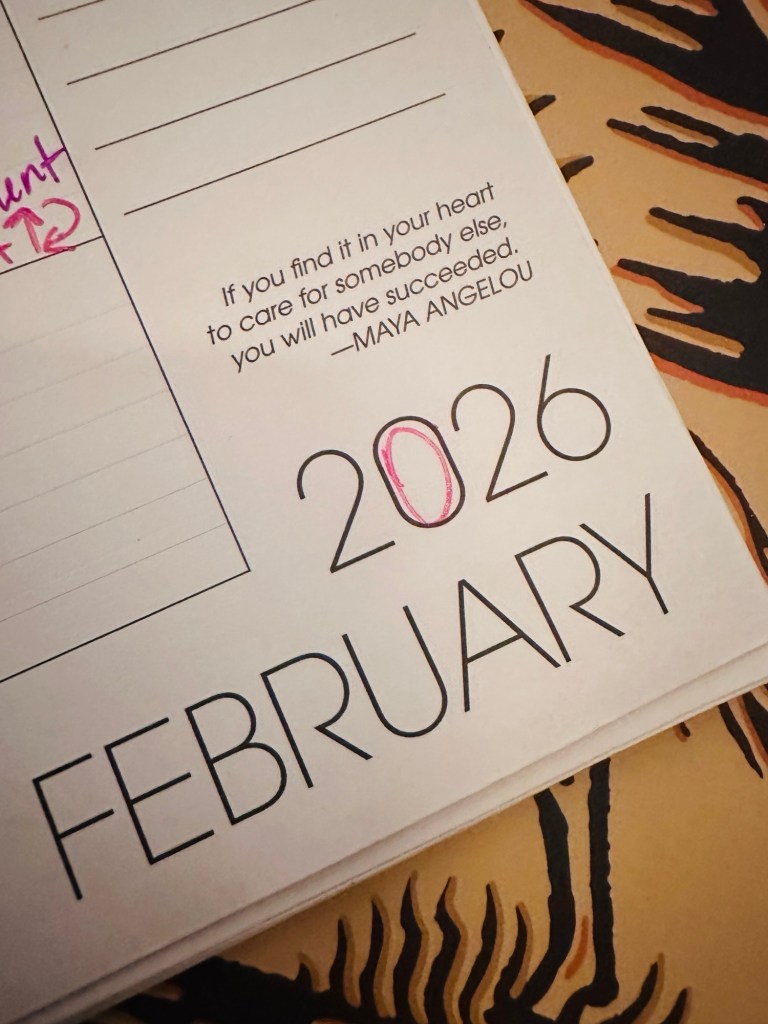 If you find it in your heart
to care for somebody else,
you will have succeeded.
—MAYA ANGELOU
2026
FEBRUARY